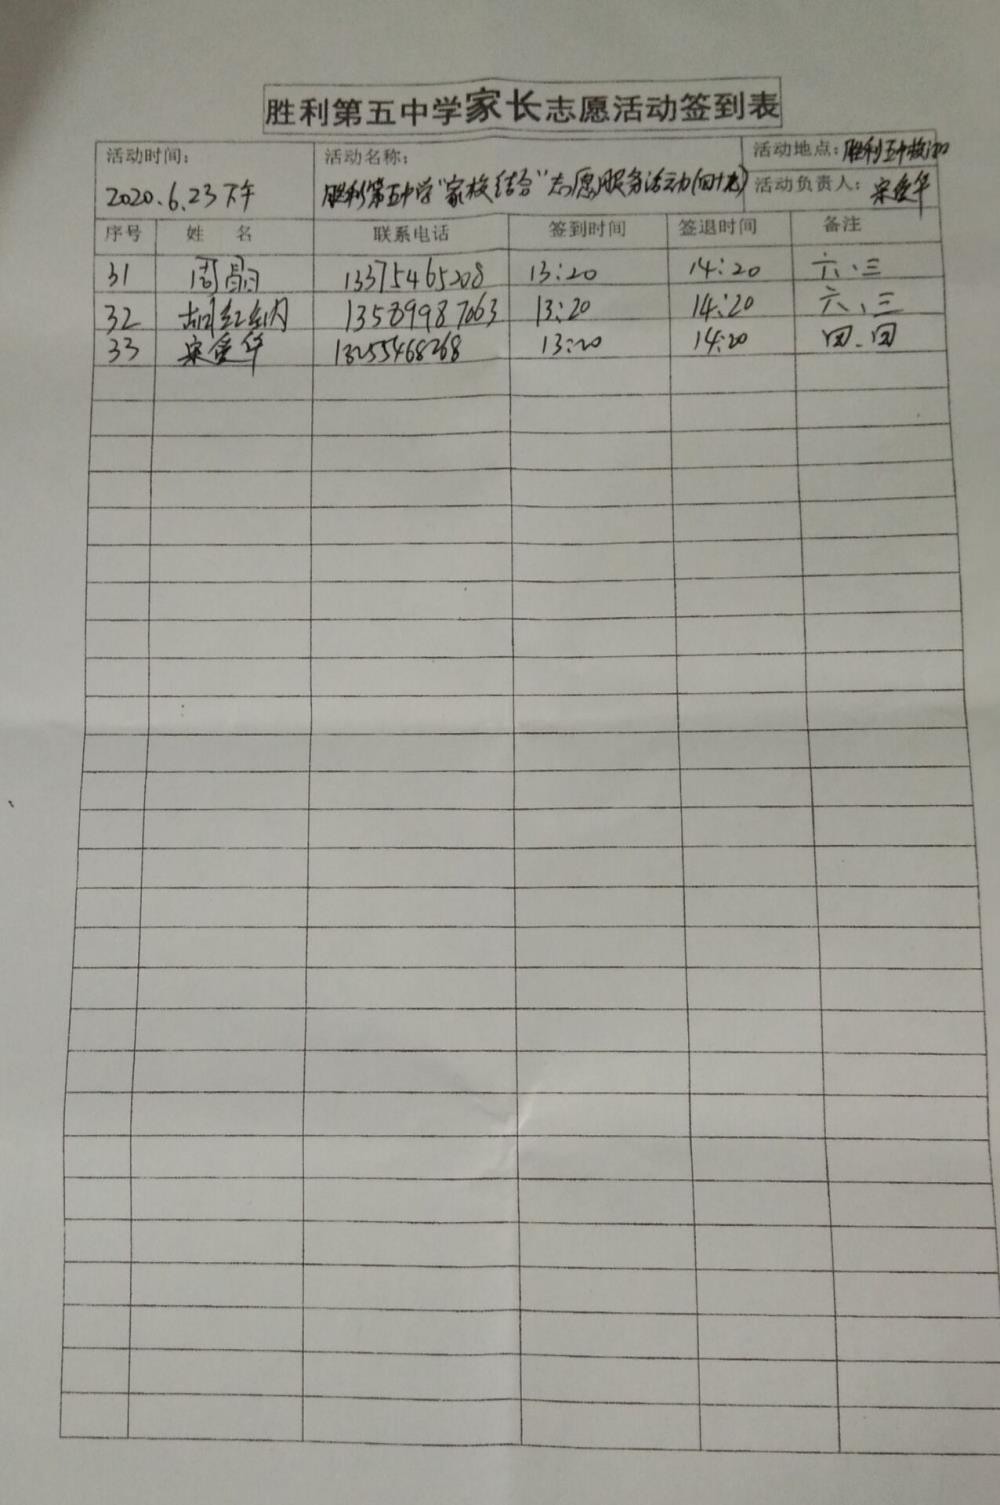 胜利第五中学家长志愿活动签到表
活动时间: 活动名称: 活动地点: 胜利五中校门口
2020.6.23下午 胜利第五中学"家校结合"志愿服务活动(四十九) 活动负责人: 宋爱华
序号 姓 名 联系电话 签到时间 签退时间 备注
31 周 13375465208 13:20 14:20 六、三
32 胡红纳 13589987063 13:20 14:20 六、三
33 宋爱华 13255468268 13:20 14:20 四、四